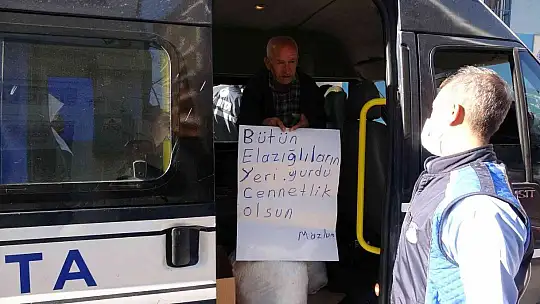 Bütün
Elazığlıların
Yeri, yurdu
Cennetlik
olsun
Mazlum
TA